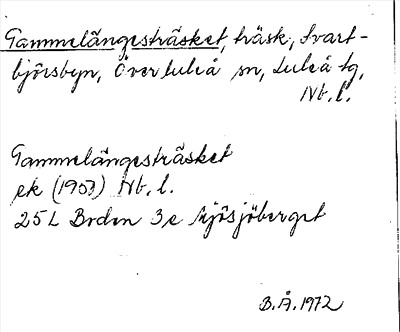 Gammelängesträsket, träsk, Svart-
björsbyn, Överluleå sn, Luleå tg,
Nb. l.
Gammelängesträsket
ek (1953) Nb. l.
25 L Boden 3e Mjösjöberget
B.Å. 1972